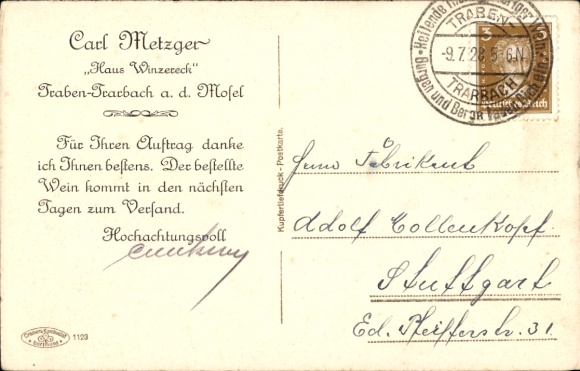 Carl Metzger
„Haus Winzereck"
Traben-Trarbach a. d. Mosel
Für Ihren Auftrag danke
ich Ihnen bestens. Der bestellte
Wein kommt in den nächsten
Tagen zum Versand.
Hochachtungsvoll
1123
Kupfertiefdruck - Postkarte.
TRABEN
-9.7.28 5-6N
TRARBACH
Heilende
Wein
Burgen und Berge
3
3
Deutsches Reich
Herrn Fabrikant
Adolf Collenkopf.
Stuttgart
Ed. Pfeifferstr. 31.